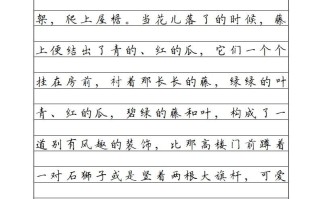 架，爬上屋檐。当花儿落了的时候，藤
上便结出了青的、红的瓜，它们一个个
挂在房前，衬着那长长的藤，绿绿的叶
青、红的瓜，碧绿的藤和叶，构成了一
道别有风趣的装饰，比那高楼门前蹲着
一对石狮子或是竖着两根大旗杆，可爱